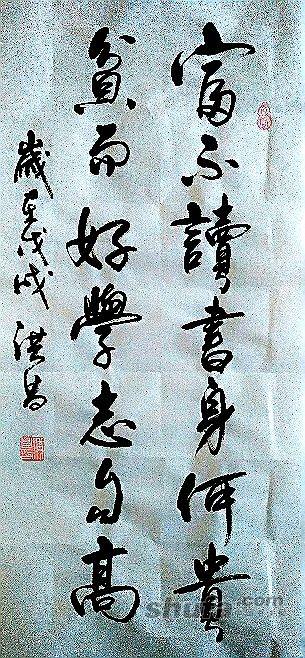 富不讀書身何貴
貧而好學志自高
歲在戊戌 洪昌
shufa.com